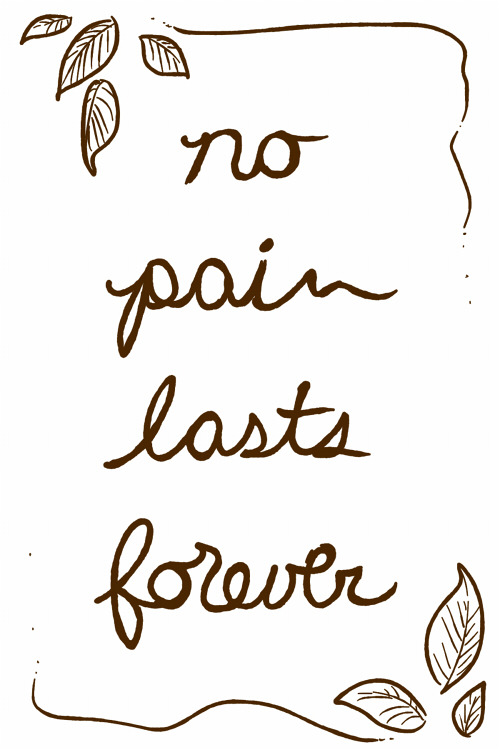 no
pain
lasts
forever